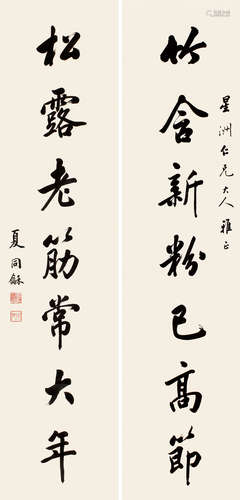 星洲仁兄大人雅正
竹含新粉已高節
松露老筋常大年
夏同龢